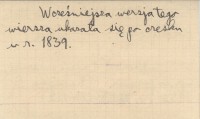 Wcześniejsza wersja tego
wiersza ukazała się po czesku
w r. 1839.